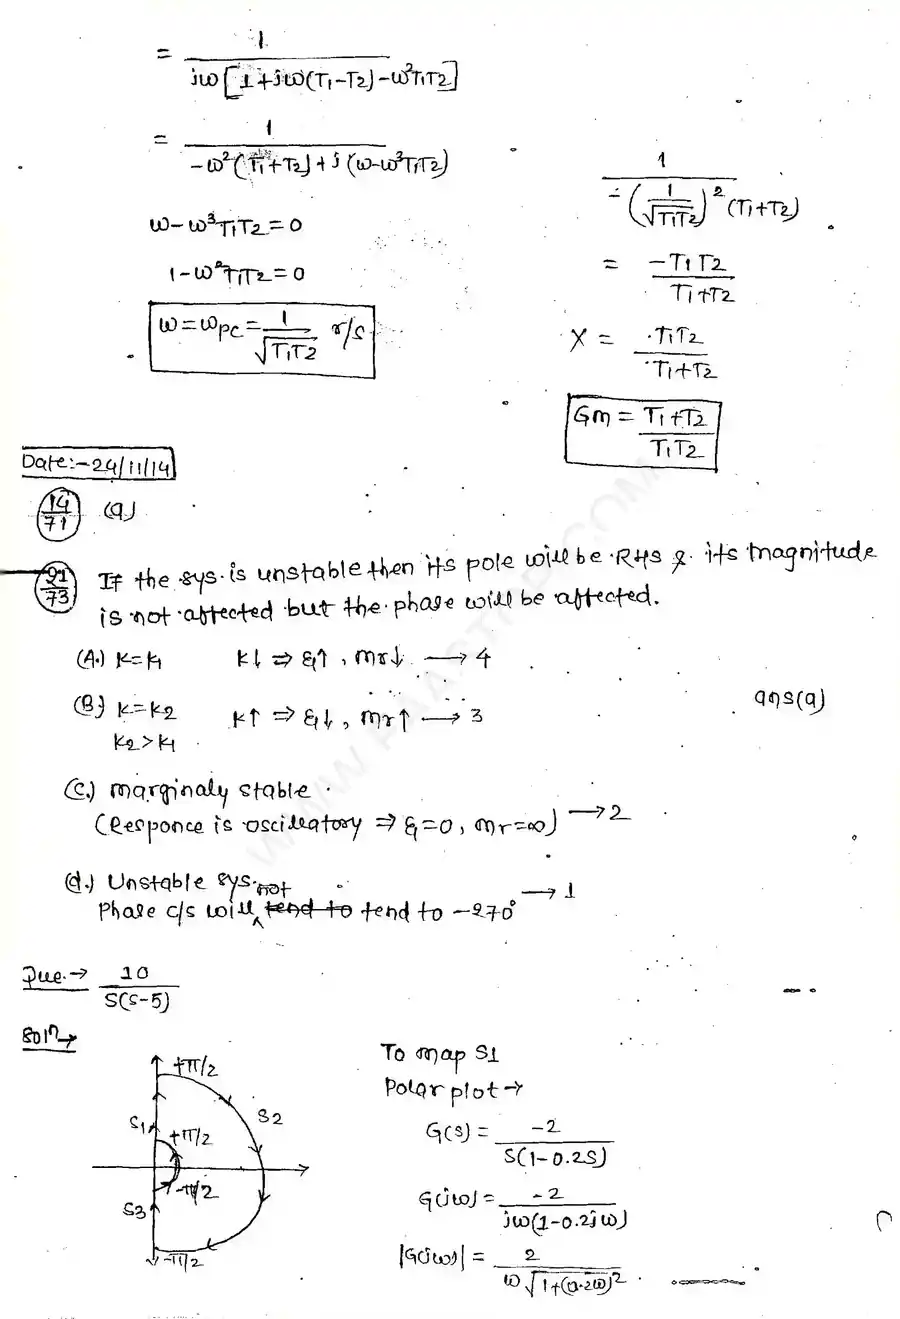 = 1 / jω[1+jω(T1-T2)-ω²T1T2]
= 1 / -ω²(T1+T2)+j(ω-ω³T1T2)
ω-ω³T1T2=0
1-ω²T1T2=0
ω=ωpc= 1/√T1T2 r/s
1 / = (1/√T1T2)² (T1+T2)
= -T1T2 / T1+T2
X = T1T2 / T1+T2
Gm = T1+T2 / T1T2
Date:-24/11/14
14/71 (a)
91/73 If the sys. is unstable then its pole will be RHS & its magnitude
is not affected but the phase will be affected.
(A.) K=K1 K↓ ⇒ ξ↑, mr↓ → 4
(B) K=K2 K↑ ⇒ ξ↓, mr↑ → 3 ans(a)
K2>K1
(C.) marginaly stable
(Responce is oscillatory ⇒ ξ=0, mr=∞) → 2
(d.) Unstable sys.
Phase c/s will not tend to -270° → 1
Que.→ 10 / S(S-5)
Soln→
+π/2
S1
+π/2
S2
-π/2
S3
-π/2
To map S1
Polar plot→
G(s) = -2 / S(1-0.2S)
G(jω) = -2 / jω(1-0.2jω)
|G(jω)| = 2 / ω√1+(0.2ω)²
WWW.RAASTRP.COM